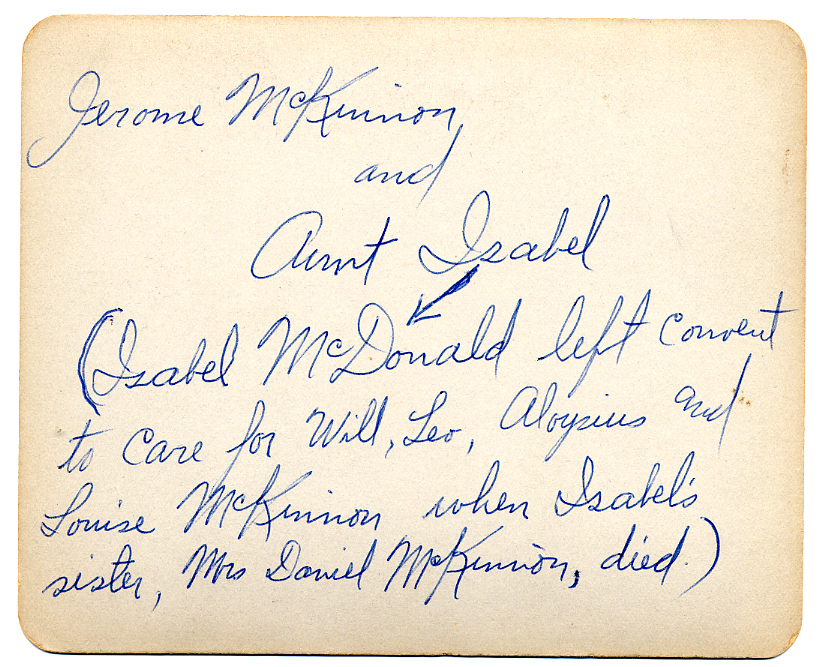 Jerome McKinnon
and
Aunt Isabel
(Isabel McDonald left convent
to care for Will, Leo, Aloysius and
Louise McKinnon when Isabel's
sister, Mrs Daniel McKinnon, died.)